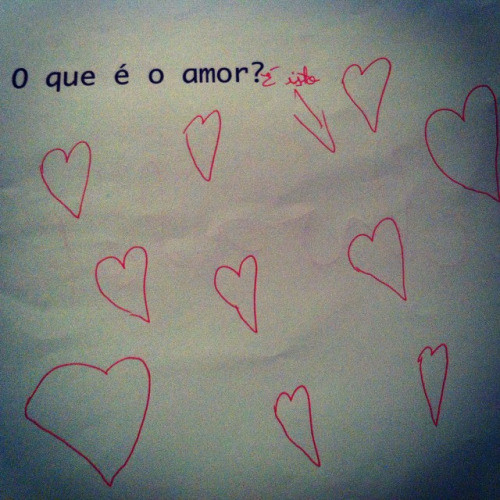 O que é o amor? É isto